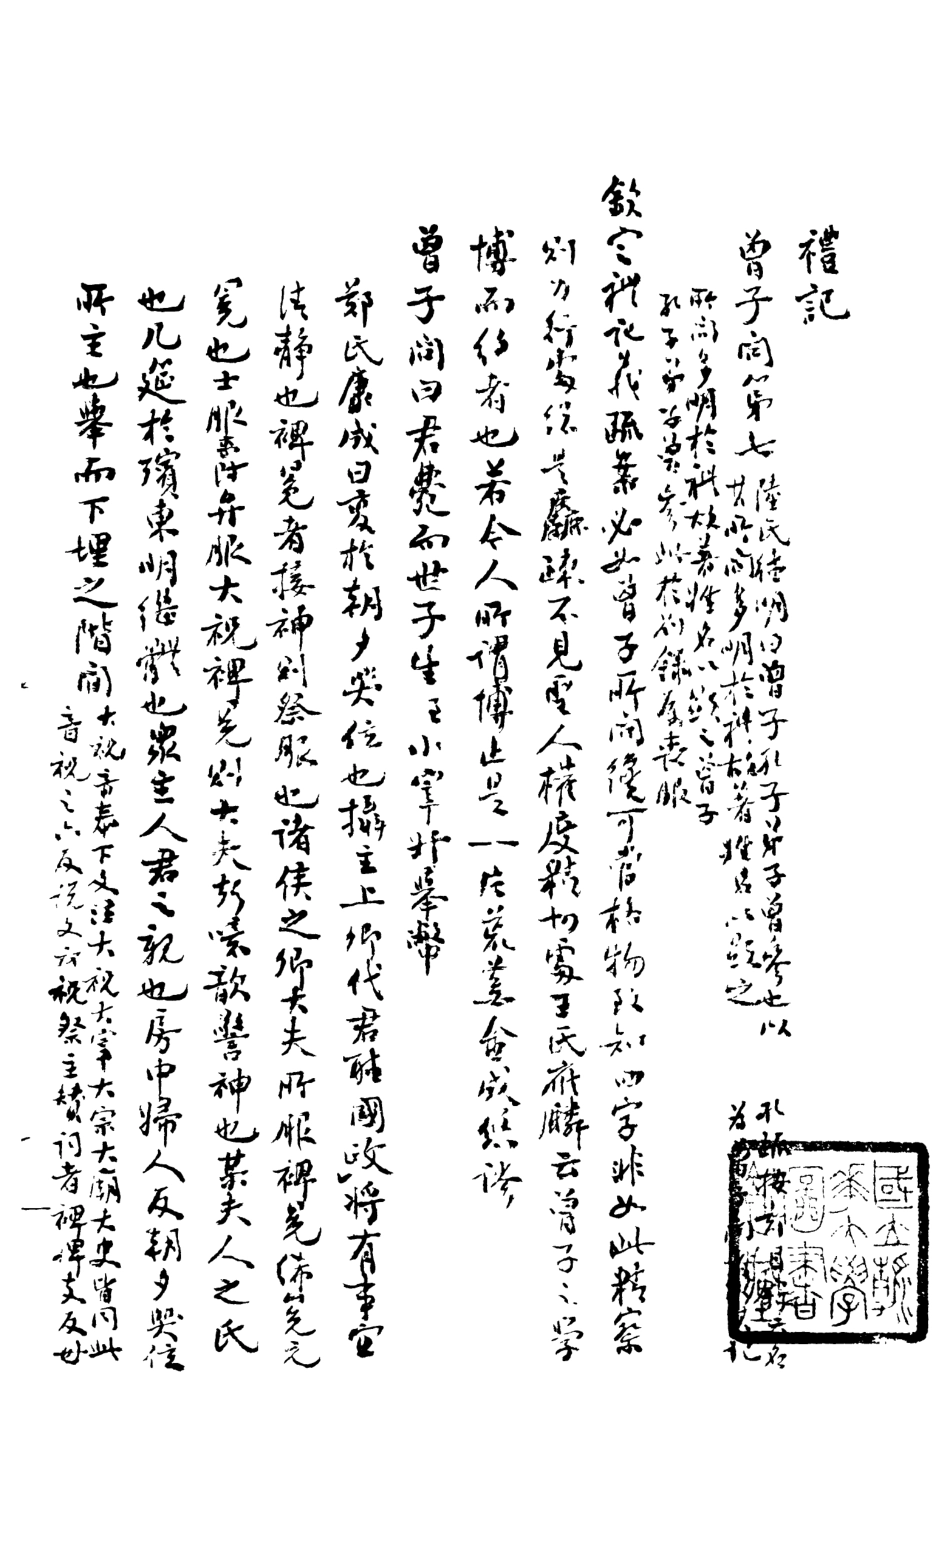 禮記
曾子問第七
陸氏德明曰曾子孔子弟子曾參也以
其所問多明於禮故著姓名以顯之
孔疏按鄭目錄云名
為曾子問者
記
所問多明於禮故著姓名以顯之曾子
孔子弟子曾參此於別錄屬喪服
欽定禮記義疏案必如曾子所問纔可當格物致知四字非如此精察
則力行處總是麤疎不見聖人權度精切處王氏應麟云曾子之學
博而約者也若今人所謂博止是一片荒
曾子問曰君薨而世子生至小宰升舉幣
鄭氏康成曰變於朝夕哭位也攝主上卿代君聽國政將有事宜
清靜也裨冕者接神則祭服也諸侯之卿大夫所服裨冕絺冕元
冕也士服爵弁服大祝裨冕則大夫聲噫歆警神也某夫人之氏
也几筵於殯東明繼體也眾主人君之親也房中婦人反朝夕哭位
所主也舉而下埋之階間
大祝音泰下文注大祝大宰大宗大廟大史皆同此
音祝之六反說文云祝祭主贊詞者裨婢支反毋
國立 大學 圖書